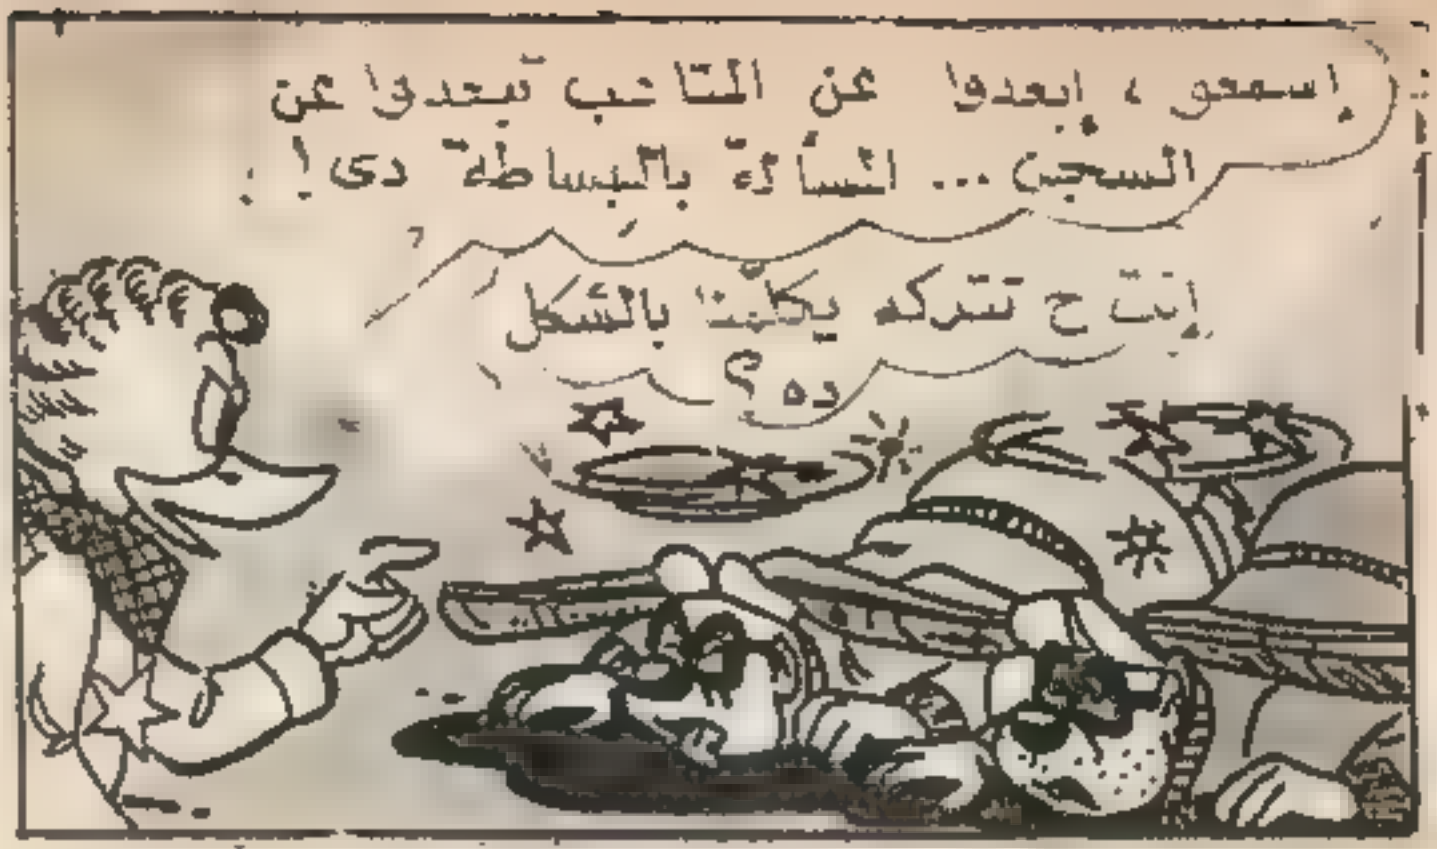 إسمعو ، إبعدوا عن المتاعب تبعدوا عن
السجن ... المسألة بالبساطة دى !
إنت ح تتركه يكلمنا بالشكل
ده ؟